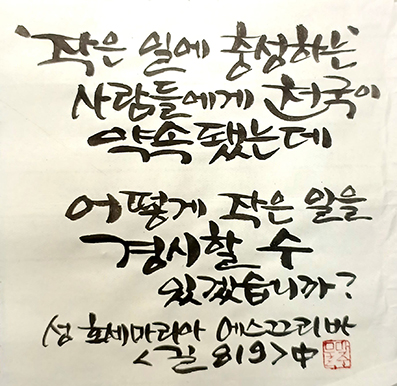 '작은 일에 충성하는'
사람들에게 천국이
약속됐는데
어떻게 작은 일을
경시할 수
있겠습니까?
성 호세마리아 에스끄리바
<길 819> 中